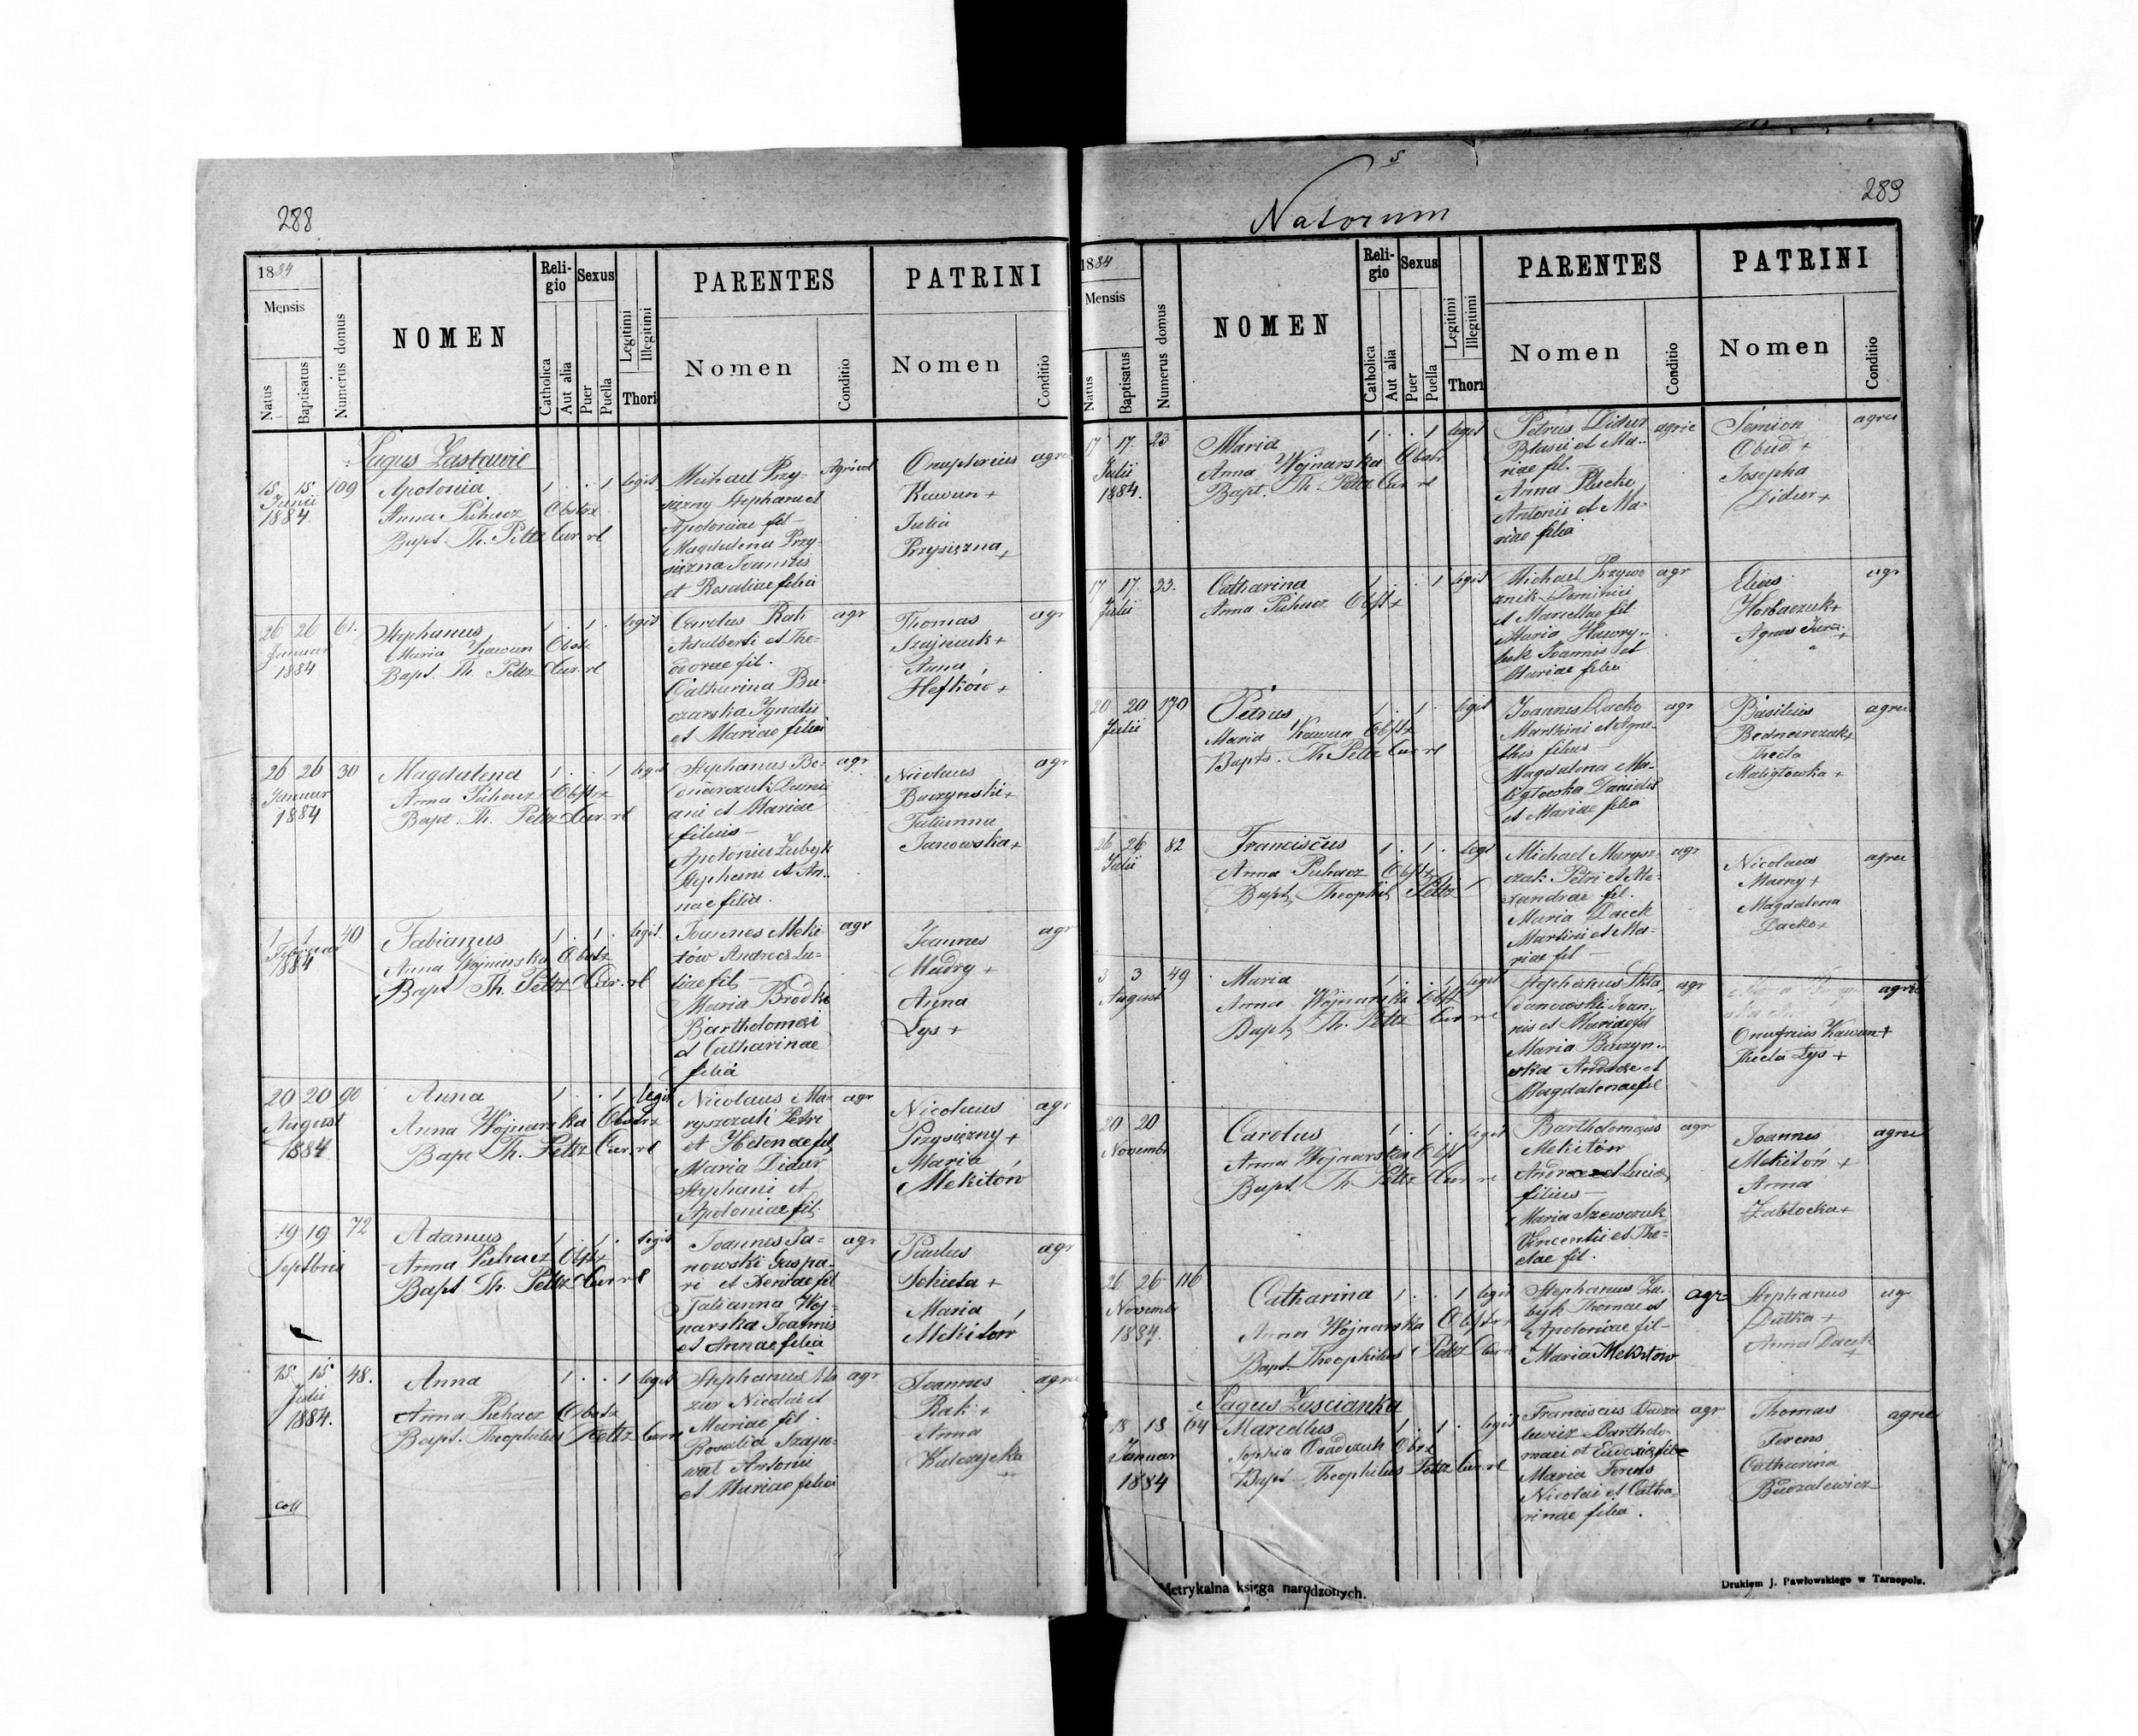 288
1884
Mensis
Natus
Baptisatus
Numerus domus
NOMEN
Religio
Catholica
Aut alia
Sexus
Puer
Puella
Legitimi
Illegitimi
Thori
PARENTES
Nomen
Conditio
PATRINI
Nomen
Conditio
Pagus Zastawie
15 15 109
Junii
1884.
Apolonia
Anna Puhacz Obstx
Bapt. Th. Peltz Cur. rl
1 . . 1 legit.
Michael Przy-
siężny Stephani et
Apoloniae fil -
Magdalena Przy-
siężna Joannis
et Rosaliae filia
Agricol
Onuphrius
Kawun +
Julia
Przysiężna +
26 26 61.
Januar
1884
Stephanus
Maria Kawun Obstx
Bapt. Th. Peltz Cur. rl
1 . 1 . legit
Carolus Rak
Adalberti et The-
odorae fil.
Catharina Bu-
czarska Ignatii
et Mariae filia
agr
Thomas
Szajniuk +
Anna
Hefków +
agr
26 26 30
Januar
1884
Magdalena
Anna Puhacz Obstx
Bapt. Th. Peltz Cur. rl
1 . . 1 legit
Stephanus Be-
dnarczuk Damia
ani et Mariae
filius -
Apolonia Zubyk
Stephani et An-
nae filia.
agr
Nicolaus
Buczynski +
Tatianna
Janowska +
agr
1 1 40
Februar
1884
Fabianus
Anna Wojnarska Obstx
Bapt Th. Peltz Cur. rl
1 . 1 . legit.
Joannes Meki
tów Andreae Lu-
ciae fil -
Maria Brodka
Bartholomaei
et Catharinae
filia
agr
Joannes
Mudry +
Anna
Lys +
agr
20 20 90
August
1884
Anna
Anna Wojnarska Obstx
Bapt Th. Peltz Cur. rl
1 . . 1 legit
Nicolaus Ma-
ryszczuk Petri
et Helenae fil,
Maria Didur
Stephani et
Apoloniae fil.
agr
Nicolaus
Przysiężny +
Maria
Mekitów
agr
19 19 72
Septbris
Adamus
Anna Puhacz Obstx
Bapt Th. Peltz Cur rl
1 . 1 . legit
Joannes Ja-
nowski Gaspa-
ri et Xeniae fil
Tatianna Woj-
narska Joannis
et Annae filia
agr
Paulus
Maria
Mekitów
agr
15 15 48.
Julii
1884.
Anna
Anna Puhacz Obstx
Bapt. Theophilus Peltz Curr
1 . . 1 legit
Stephanus Ma
zur Nicolai et
Mariae fil.
Rosalia Szajn-
wał Antonii
et Mariae filia
agr
Joannes
Rak +
Anna
coll
Natorum
289
1884
Mensis
Natus
Baptisatus
Numerus domus
NOMEN
Religio
Catholica
Aut alia
Sexus
Puer
Puella
Legitimi
Illegitimi
Thori
PARENTES
Nomen
Conditio
PATRINI
Nomen
Conditio
17 17 23
Julii
1884.
Maria
Anna Wojnarska Obstr
Bapt. Th. Peltz Cur rl
1 . . 1 legit
Petrus Didur
Blasii et Ma-
riae fil.
Anna Plucke
Antonii et Ma-
riae filia
agric
Semion
Obud +
Josepha
Didur +
agric
17 17 33.
Julii
Catharina
Anna Puhacz Obstx
1 . . 1 legit
Michael Przywo
znik Dominici
et Marcellae fil
Maria Hawry-
luk Joannis et
Mariae filia
agr
Elias
Horbaczuk +
agr
20 20 170
Julii
Petrus
Maria Kawun Obstx
Bapts. Th Peltz Cur rl
1 . 1 . legit
Joannes Dacko
Marthini et Agne-
this filius -
Magdalena Ma-
ligłowka Danielis
et Mariae filia
agr
Basilius
Bednarczuk +
Thecla
Maligłowka +
agric
26 26 82
Julii
Franciscus
Anna Puhacz Obstx
Bapt. Theophil Peltz
1 . 1 . legit
Michael Marysz-
czak Petri et Ale-
xandrae fil.
Maria Dacek
Martini et Ma-
riae fil -
agr
Nicolaus
Marny +
Magdalena
Dacko +
agric
3 3 49
August
Maria
Anna Wojnarska Obst
Bapt. Th. Peltz Cur rl
1 . . 1 legit
Stephanus Skla-
danowski Joan-
nis et Mariae fil
Maria Buczyn-
ska Andreae et
Magdalenae fil
agr
Onufrius Kawun +
Thecla Lys +
agric
20 20
Novembr
Carolus
Anna Wojnarska Obst
Bapt. Th Peltz Cur rl
1 . 1 . legit
Bartholomaeus
Mekitów
Andreae et Luciae
filius -
Maria Szewczuk
Vincentii et The-
clae fil.
agr
Joannes
Mekitów +
Anna
Zabłocka +
agric
26 26 116
Novembr
1884.
Catharina
Anna Wojnarska Obstx
Bapt. Theophilus Peltz Curr
1 . . 1 legit
Stephanus Zu-
byk Thomae et
Apoloniae fil -
Maria Mekitow
agr
Stephanus
Dutka +
Anna Dacek
+
agr
Pagus Zascianka
18 18 64
Januar
1884
Marcellus
Sophia Osadczuk Obst
Bapt Theophilus Peltz Cur. rl
1 . 1 . legit
Franciscus Budza
lewicz Bartholo-
maei et Eudoxiae fil
Maria Ferens
Nicolai et Catha-
rinae filia.
agr
Thomas
Ferens
Catharina
Budzalewicz
agric
Metrykalna księga narodzonych.
Drukiem J. Pawłowskiego w Tarnopolu.